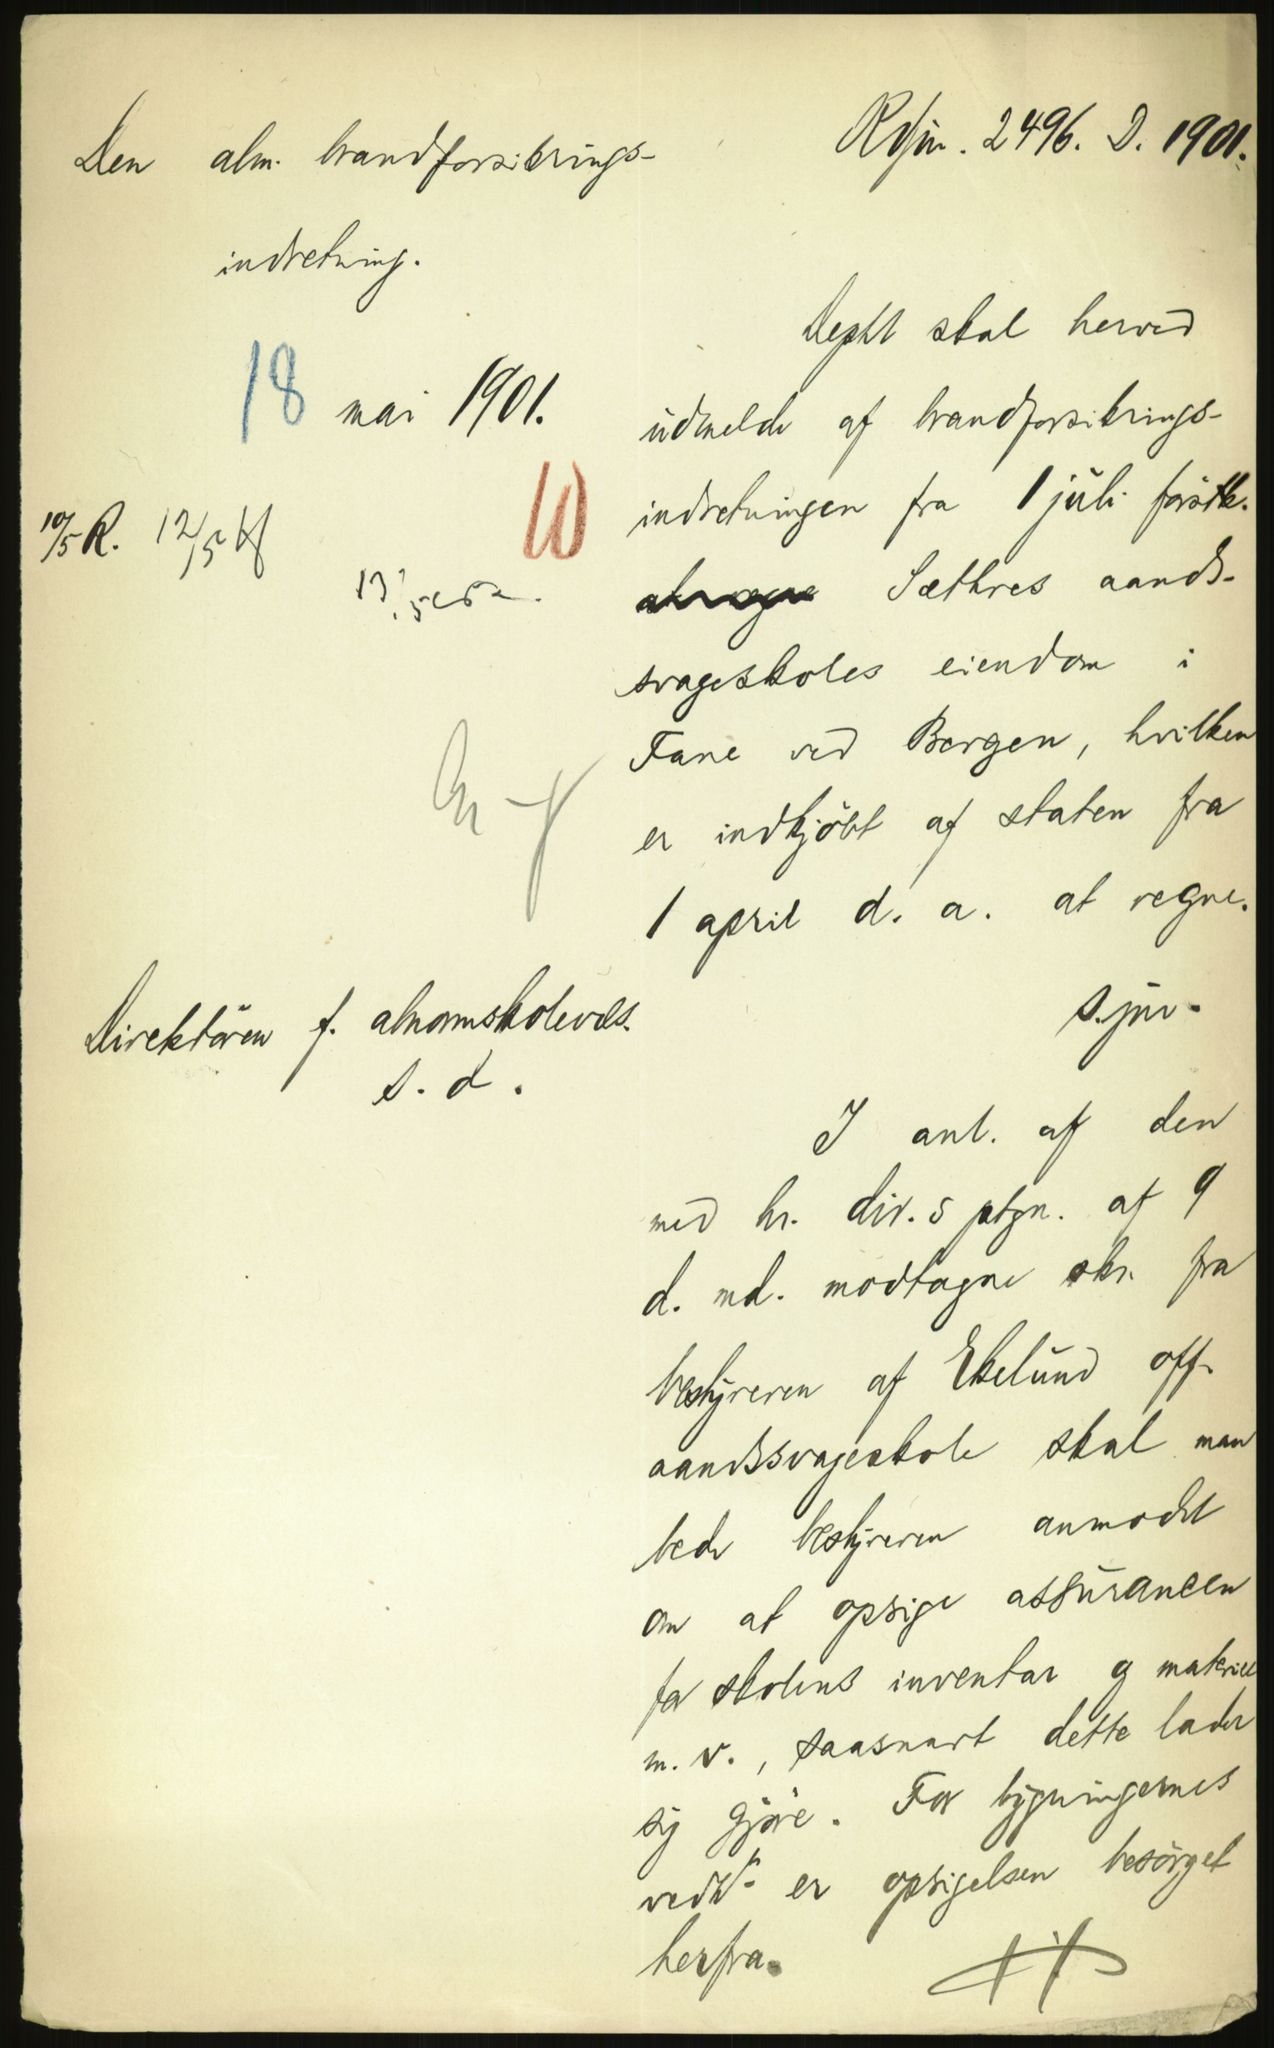 Den alm. brandforsikrings-
indretning.
Rdjn. 2496. D. 1901.
18 mai 1901.
10/5 R. 12/5
10
Depkt skal herved
udmelde af brandforsikrings-
indretningen fra 1 juli førstk.
Sæthres aands-
svageskoles eiendom i
Fane ved Bergen, hvilken
er indkjöbt af staten fra
1 april d. a. at regne.
S.jnr.
Direktören f. abnormskolevæs.
s. d.
I anl. af den
med hr. dir.s ptgn. af 9
d. md. modtagne skr. fra
bestyreren af Ekelund off.
aandssvageskole skal man
bede bestyreren anmodet
om at opsige assurancen
for skolens inventar og materiel
m. v., saasnart dette lader
sig gjöre. For bygningernes
vedk. er opsigelsen besörget
herfra.